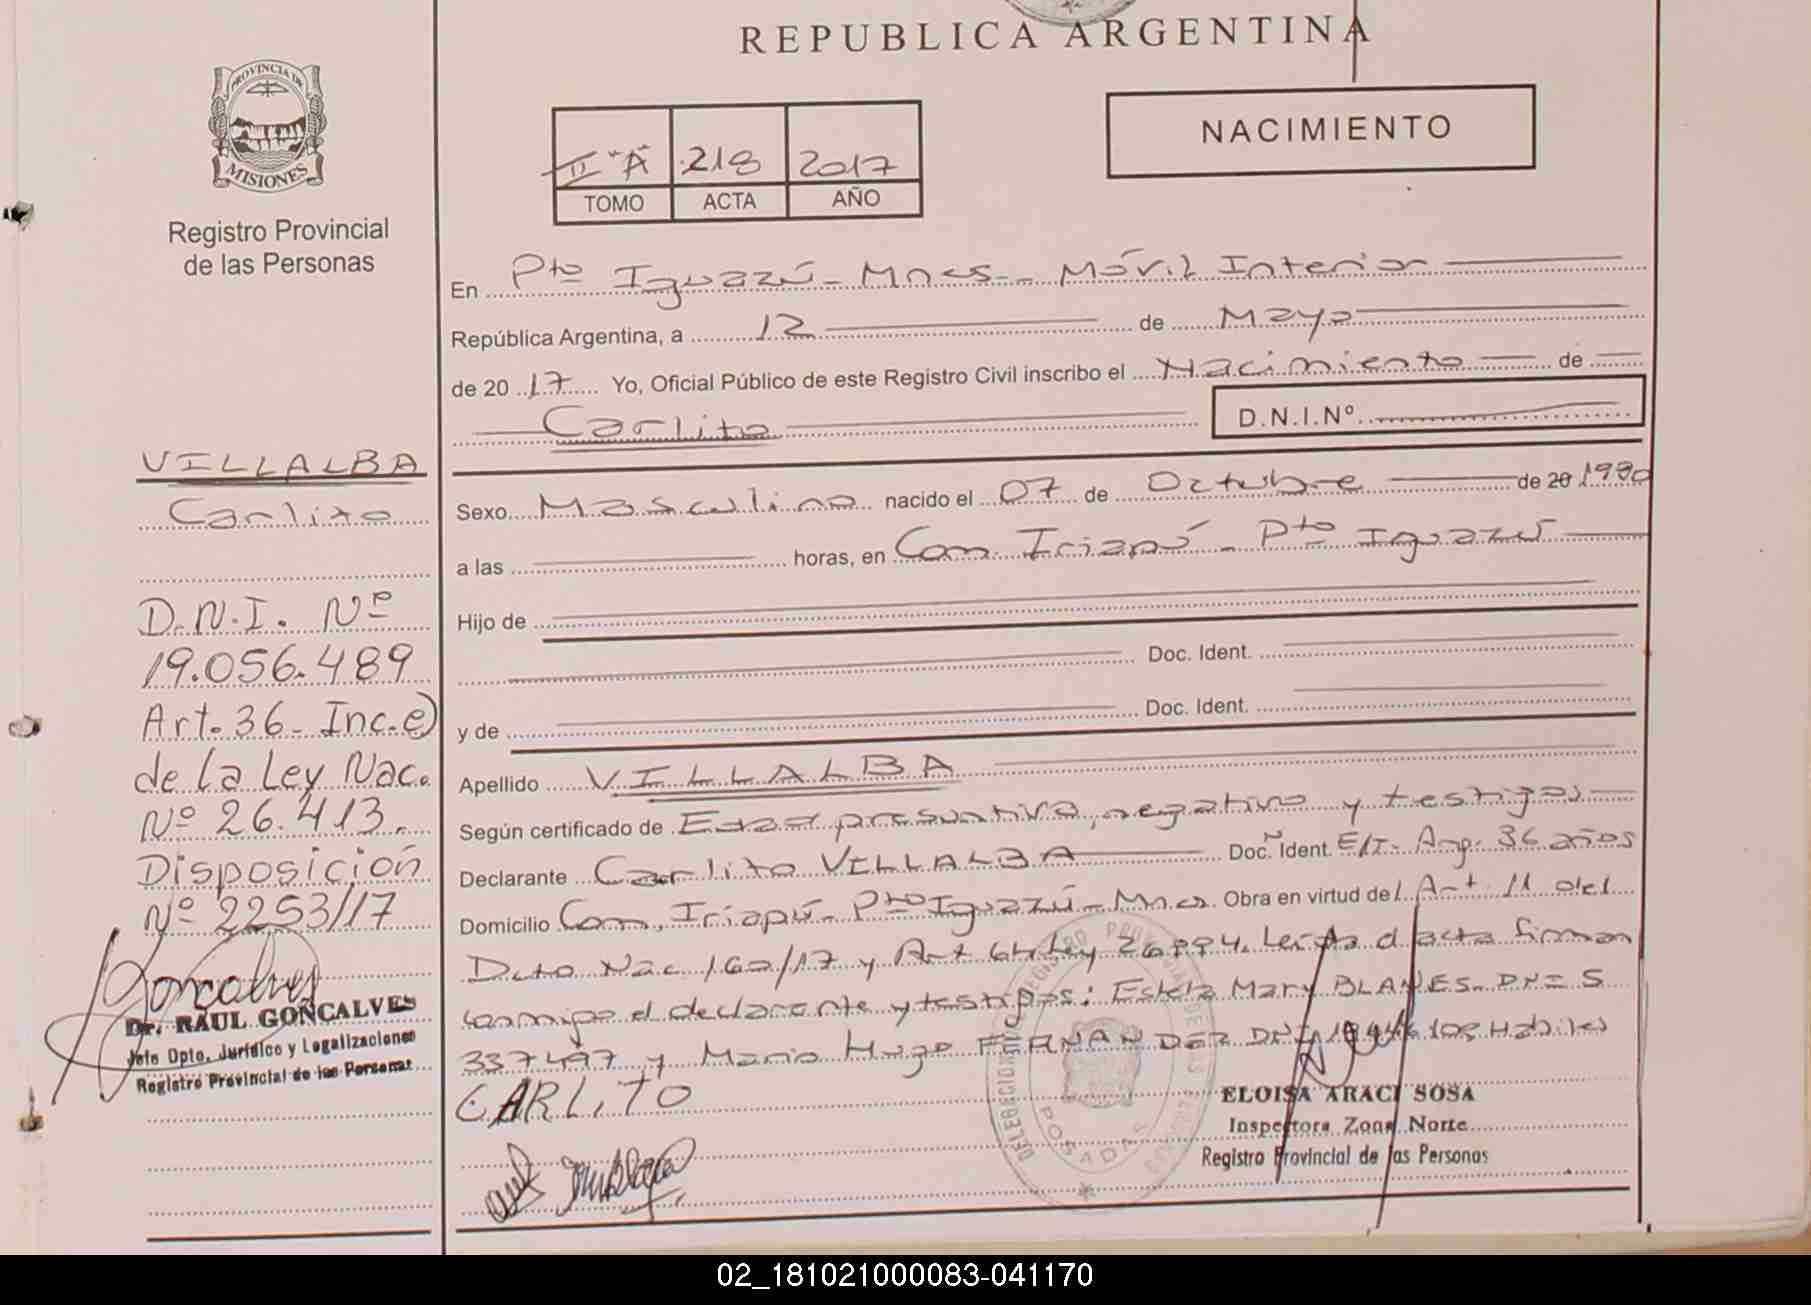 REPUBLICA ARGENTINA
PROVINCIA DE
MISIONES
Registro Provincial
de las Personas
II "A" 218 2017
TOMO ACTA AÑO
NACIMIENTO
En Pto Iguazú - Mnes - Móvil Interior
República Argentina, a 12 de Mayo
de 2017 Yo, Oficial Público de este Registro Civil inscribo el Nacimiento de
Carlito D.N.I.Nº
VILLALBA
Carlito
D.N.I. Nº
19.056.489
Art. 36 - Inc. e)
de la Ley Nac.
Nº 26.413.
Disposición
Nº 2253/17
Goncalves
Dr. RAUL GONCALVES
Jefe Dpto. Jurídico y Legalizaciones
Registro Provincial de las Personas
Sexo Masculino nacido el 07 de Octubre de 20 1980
a las horas, en Com Iriapú - Pto Iguazú
Hijo de
Doc. Ident.
y de Doc. Ident.
Apellido VILLALBA
Según certificado de Edad presuntiva, negativo y testigos
Declarante Carlito VILLALBA Doc. Ident. E/T - Arg. 36 años
Domicilio Com. Iriapú - Pto Iguazú - Mnes Obra en virtud del Art 11 del
Dcto Nac 160/17 y Art 64 Ley 26994. Leída el acta firman
conmigo el declarante y testigos: Estela Mary BLANES - DNI 5
337497 y Mario Hugo FERNANDEZ DNI Hábiles
CARLITO
ELOISA ARACI SOSA
Inspectora Zona Norte
Registro Provincial de las Personas
POSADAS
02_181021000083-041170